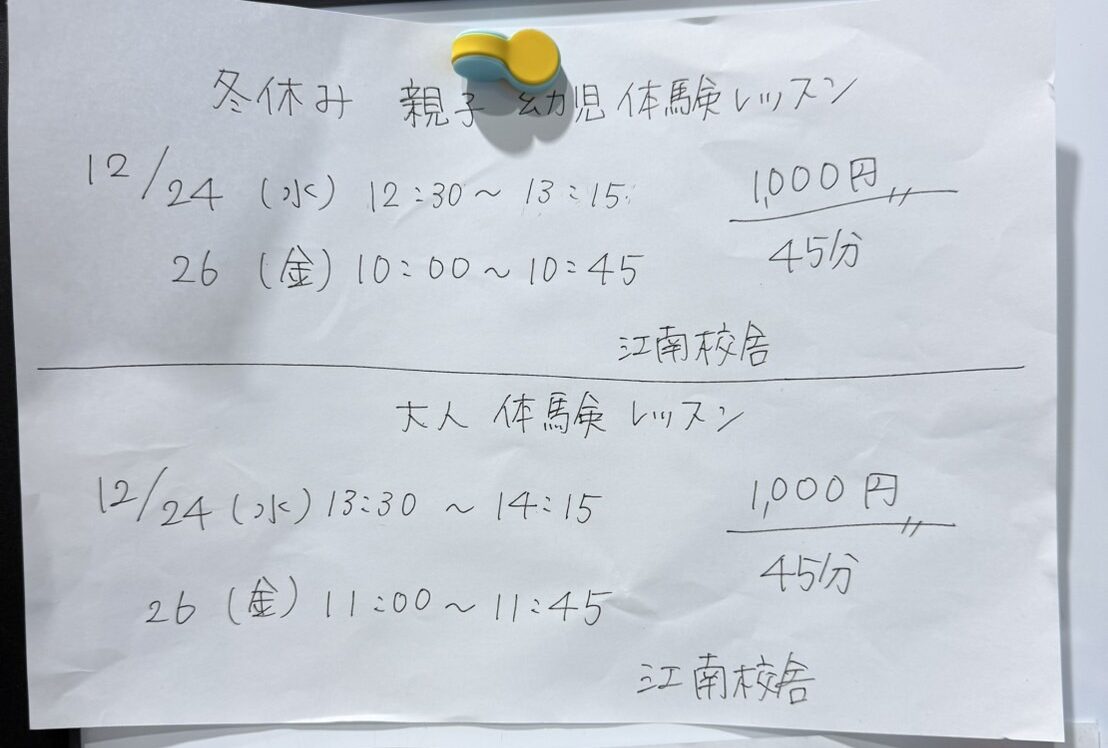 冬休み 親子 幼児 体験レッスン
12/24 (水) 12:30～13:15
1,000円
26 (金) 10:00～10:45
45分
江南校舎
大人 体験 レッスン
12/24 (水) 13:30 ～ 14:15
1,000円
45分
26 (金) 11:00～11:45
江南校舎